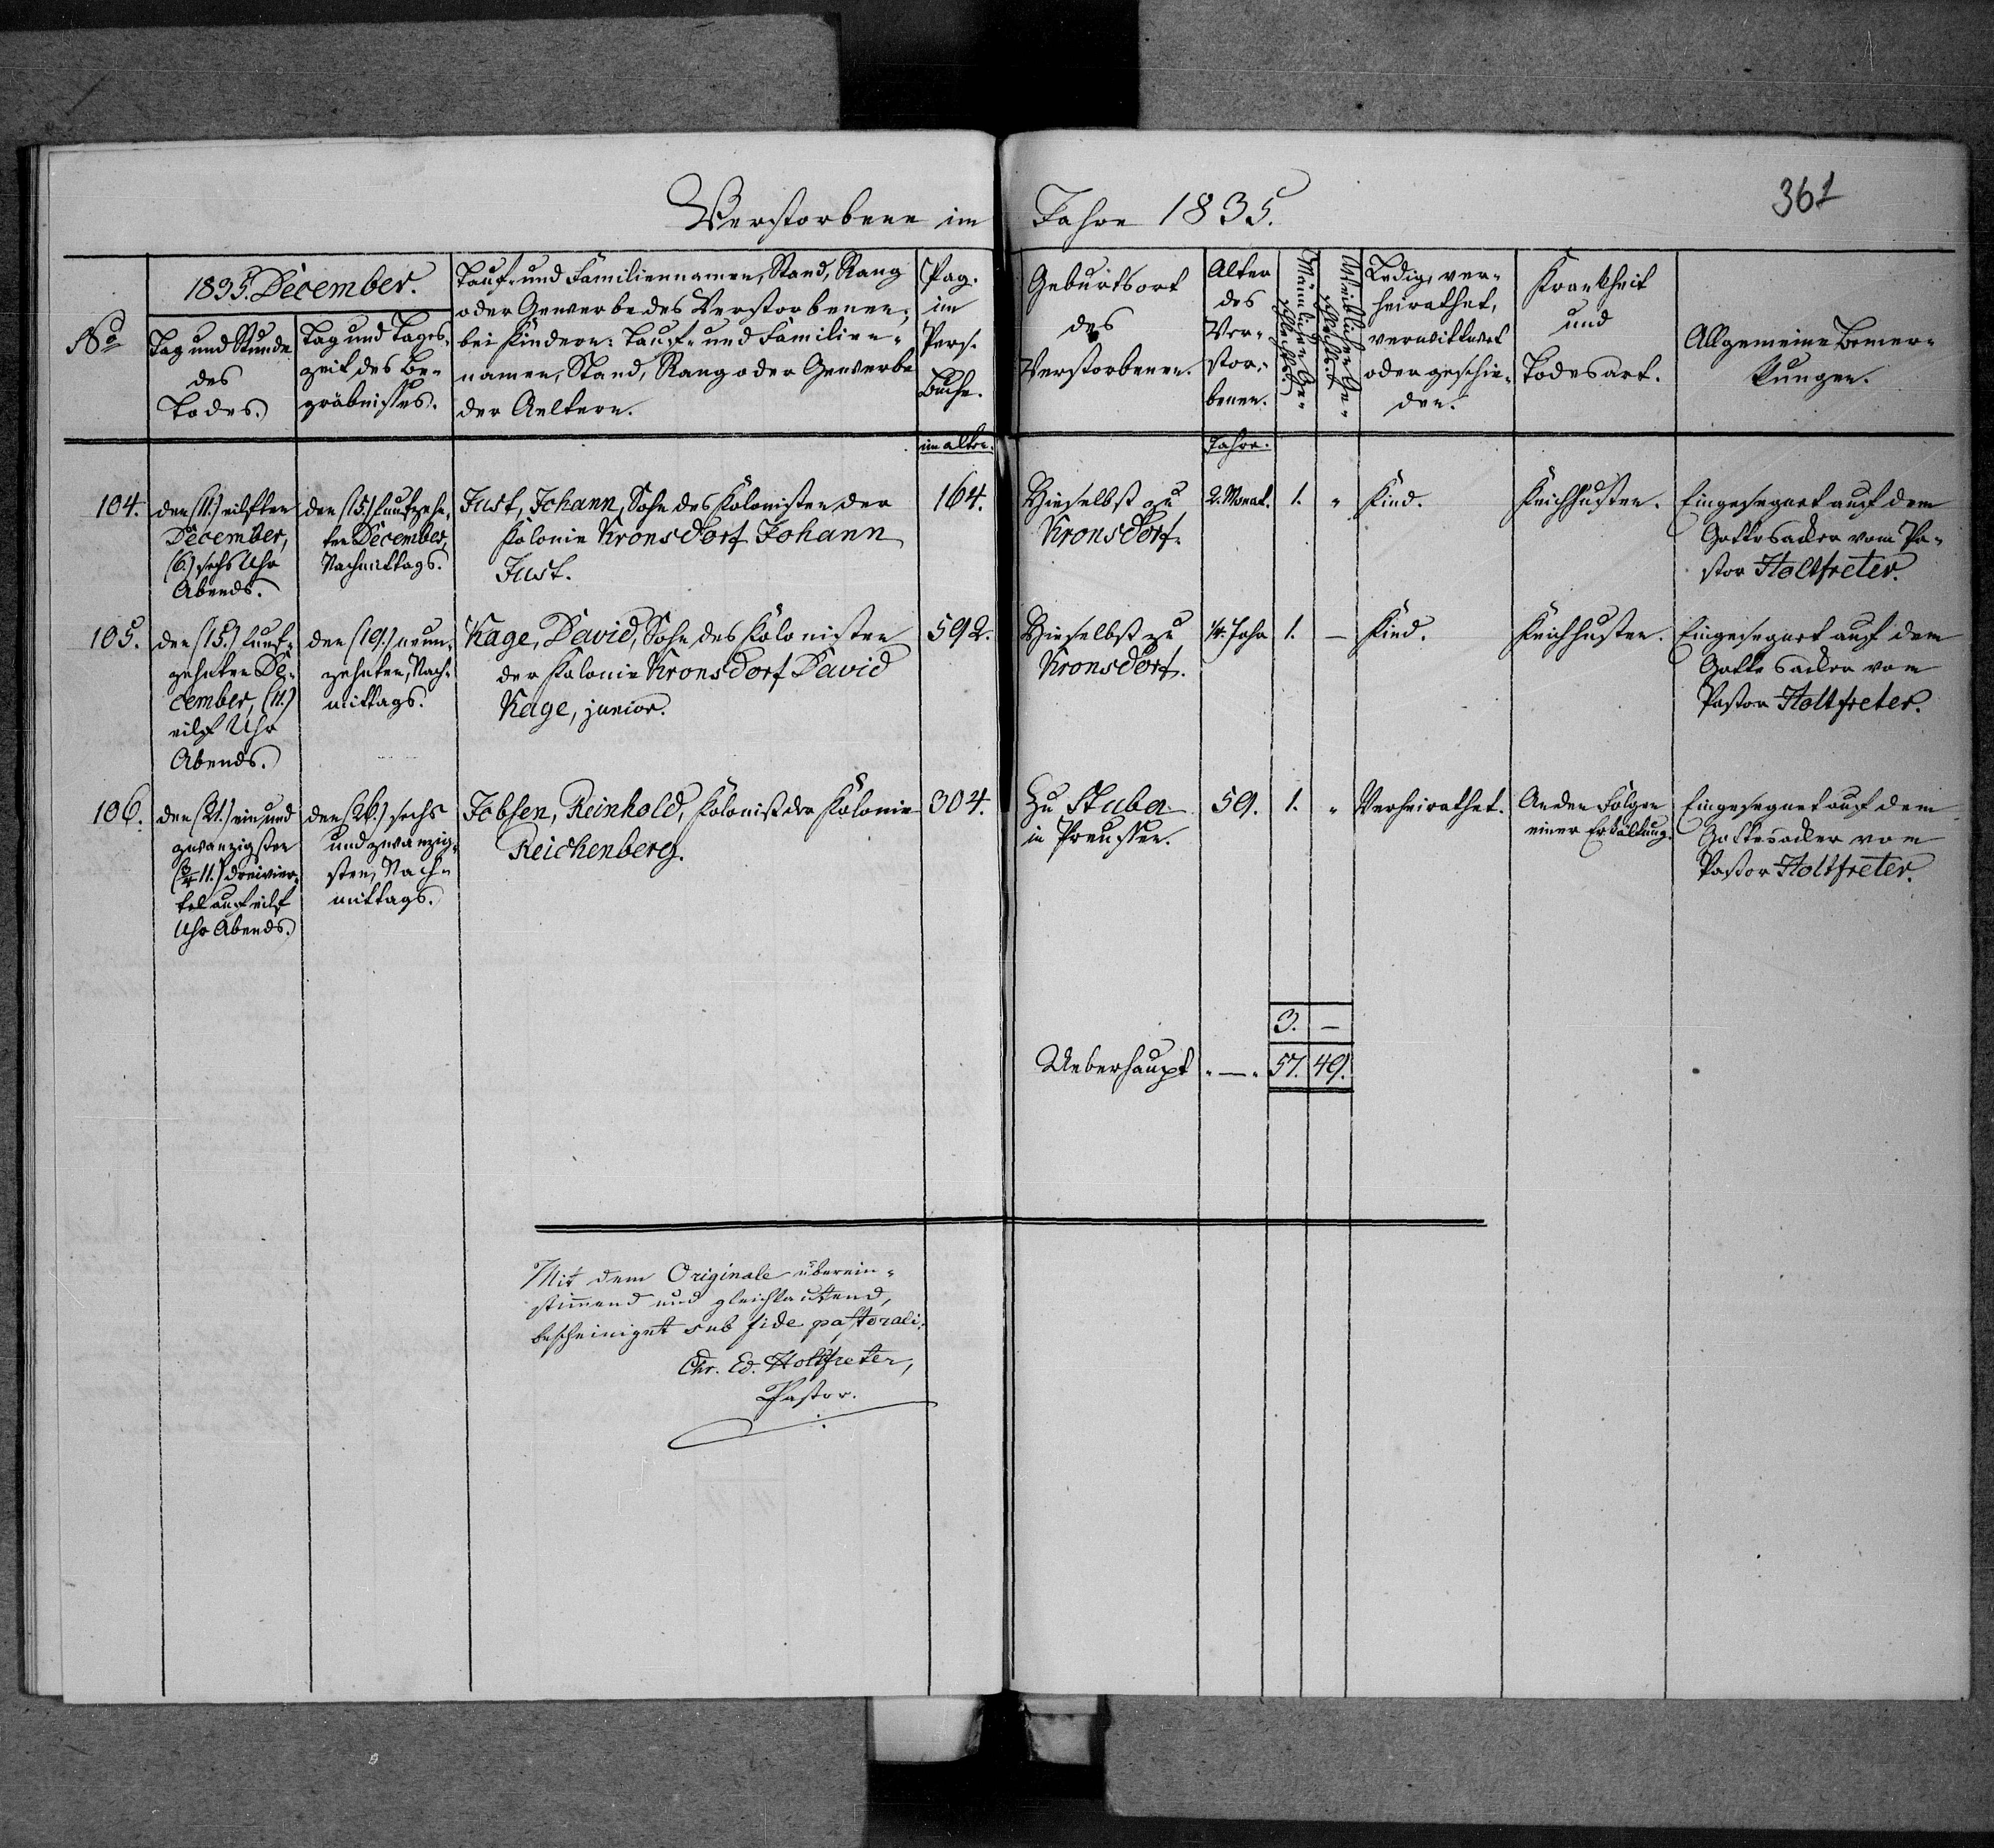 Verstorbene im Jahre 1835.
361
No
1835. December.
Tag und Stunde
des
Todes.
Tag und Tages-
zeit des Be-
gräbnisses.
Tauf- und Familiennamen, Stand, Rang
oder Gewerbe des Verstorbenen;
bei Kindern: Tauf- und Familien-
namen, Stand, Rang oder Gewerbe
der Aeltern.
Pag.
im
Pers.
Buche.
im alten.
Geburtsort
des
Verstorbenen.
Alter
des
Ver-
stor-
benen.
Jahre.
Männlichen Ge-
schlechts.
Weiblichen Ge-
schlechts.
Ledig, ver-
heirathet,
verwittwet
oder geschie-
den.
Krankheit
und
Todesart.
Allgemeine Bemer-
kungen.
104.
den (11.) eilften
December,
(6.) sechs Uhr
Abends.
den (15.) funfzehn-
ten December,
Nachmittags.
Just, Johann, Sohn des Kolonisten der
Kolonie Kronsdorf Johann
Just.
164.
Hieselbst zu
Kronsdorf.
2. Monat.
1.
"
Kind.
Keichhusten.
Eingesegnet auf dem
Gottesacker vom Pa-
stor Holtfreter.
105.
den (15.) funf-
zehnten De-
cember, (11.)
eilf Uhr
Abends.
den (19.) neun-
zehnten, Nach-
mittags.
Kage, David, Sohn des Kolonisten
der Kolonie Kronsdorf David
Kage, junior.
592.
Hieselbst zu
Kronsdorf.
1/4. Jahr
1.
—
Kind.
Keichhusten.
Eingesegnet auf dem
Gottesacker vom
Pastor Holtfreter.
106.
den (21.) ein und
zwanzigsten
(3/4 11.) dreivier-
tel auf eilf
Uhr Abends.
den (26.) sechs
und zwanzig-
sten, Nach-
mittags.
Jobsen, Reinhold, Kolonist der Kolonie
Reichenberg.
304.
Zu Stuba
in Preussen.
59.
1.
"
Verheirathet.
An den Folgen
einer Erkältung.
Eingesegnet auf dem
Gottesacker vom
Pastor Holtfreter.
3. —
Ueberhaupt . — . 57. 49.
Mit dem Originale überein-
stimmend und gleichlautend,
bescheiniget sub fide pastorali:
Chr. Ed. Holtfreter,
Pastor.